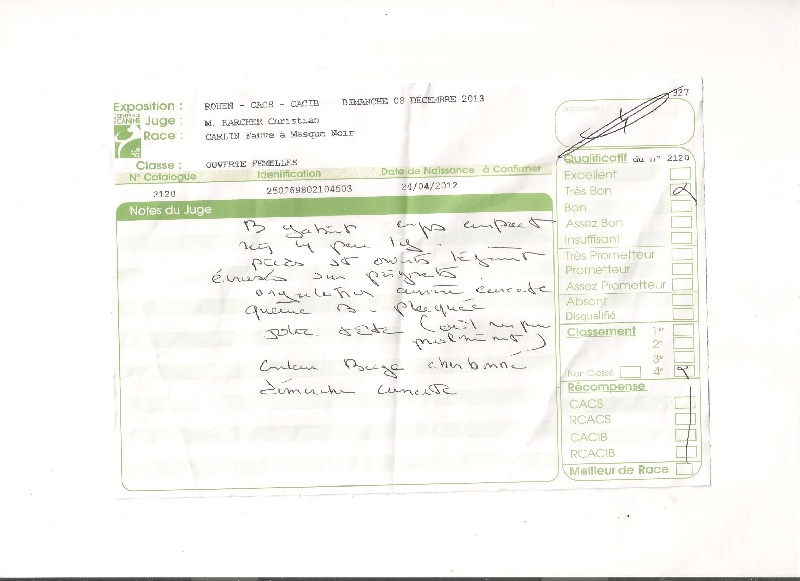 327
Exposition : ROUEN - CACS - CACIB DIMANCHE 08 DÉCEMBRE 2013
CENTRALE CANINE
Juge : M. KARCHER Christian
Race : CARLIN Fauve à Masque Noir
Classe : OUVERTE FEMELLES
N° Catalogue Identification Date de Naissance à Confirmer
2120 250269802104503 24/04/2012
Notes du Juge
B gabarit corps compact
rein un peu
pieds et ouverts
écrasés sur poignets
angulation arrière correcte
queue B. plaquée
jolie tête (œil un peu
proéminent)
Couleur Beige charbonné
démarche correcte
Signature :
Qualificatif du n° 2120
Excellent
Très Bon
Bon
Assez Bon
Insuffisant
Très Prometteur
Prometteur
Assez Prometteur
Absent
Disqualifié
Classement 1er
2e
3e
Non Classé 4e
Récompense
CACS
RCACS
CACIB
RCACIB
Meilleur de Race